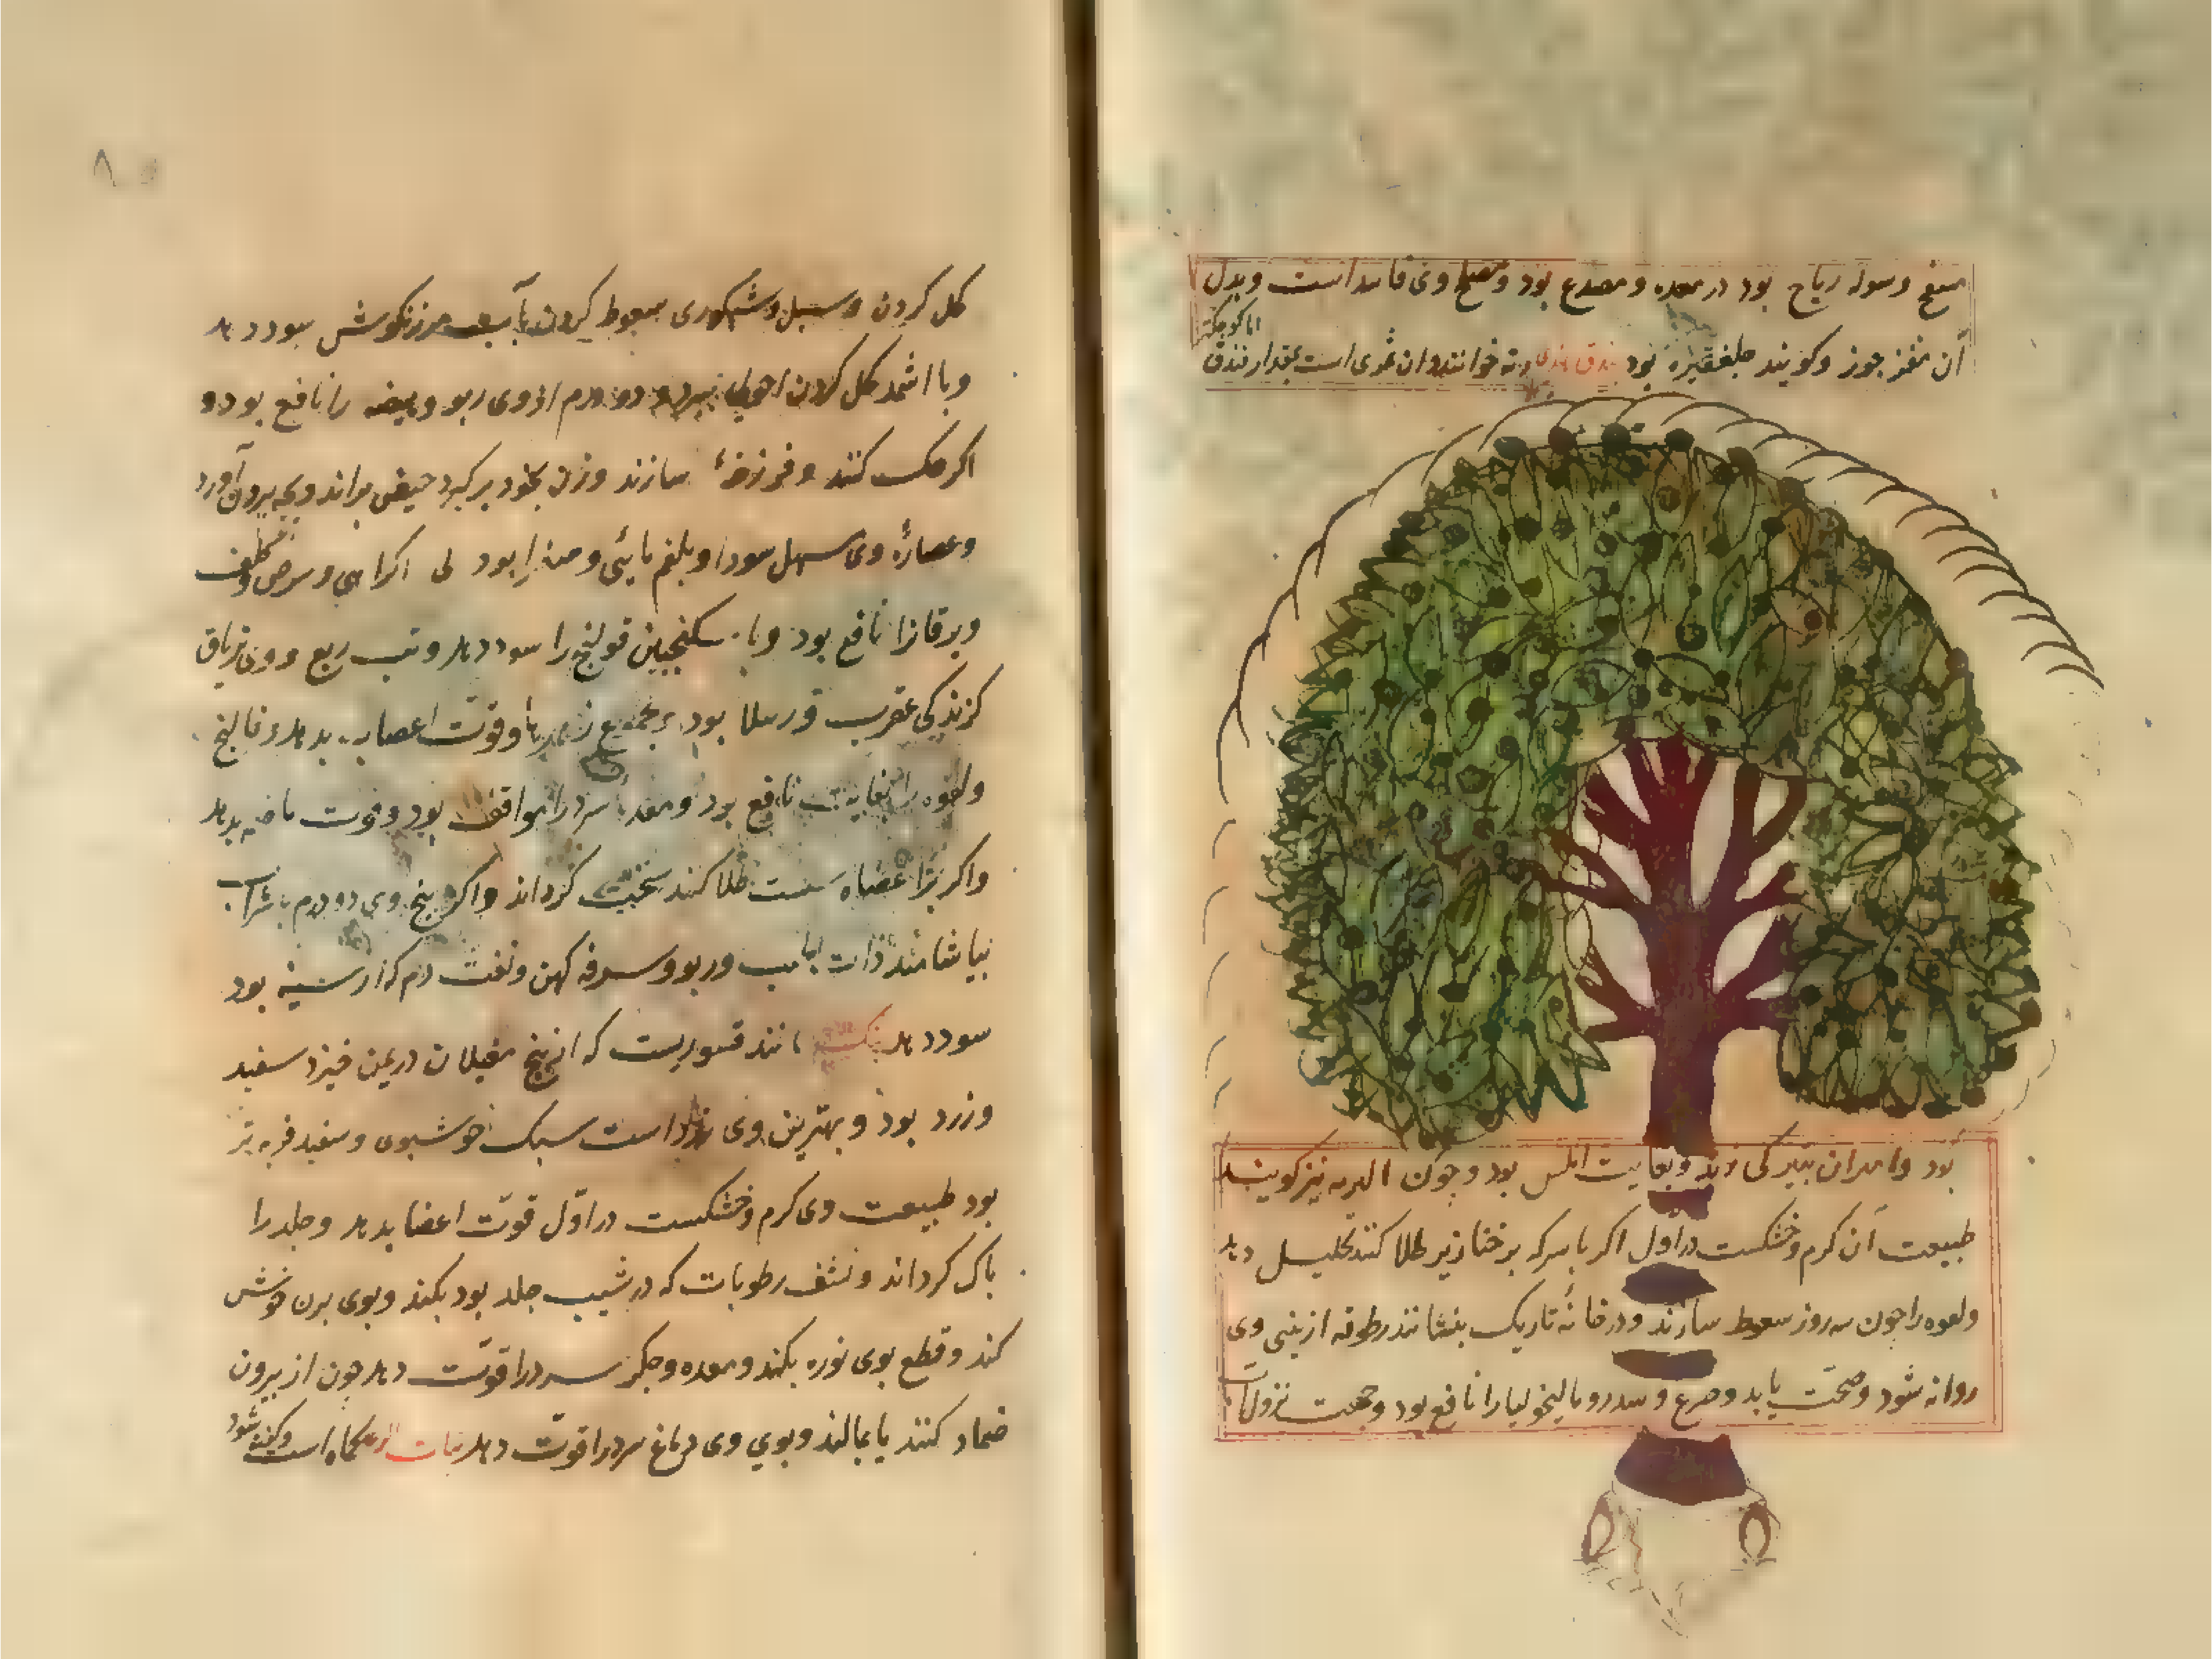 منفخ و مولد ریاح بود در معده و مصدع بود و مصلح وی فانید است و بدل
آن مغز جوز و کویند جلغوزه بود بندق هندی رته خوانند و ان ثمری است بمقدار فندق
اما کوچکتر
بود و املس بود و جوک نیز کویند
طبیعت آن کرم و خشکست در اول اکر با سرکه بر خنازیر طلا کنند تحلیل دهد
و لقوه را چون سه روز سعوط سازند و در خانهٔ تاریک بنشانند رطوبه از بینی وی
روانه شود و صحت یابد و صرع و سدر و مالیخولیا را نافع بود و جهت نزول آب
کحل کردن و سبل و شبکوری سعوط کردن بآب مرزنکوش سود دهد
و با اثمد کحل کردن احولی ببرد و دو درم از وی ربو و بیضه را نافع بود و
اکر حک کنند و فرزجهٔ سازند و زن بخود برکیرد حیض براند و بچه بیرون آورد
و عصارهٔ وی مسهل سودا و بلغم مائی و صفرا بود بی اکراهی و برص و کلف
و یرقانرا نافع بود و با سکنجبین قولنج را سود دهد و تب ربع و وی تریاق
کزندکی عقرب بود و مجموع زهرها و قوت اعصاب بدهد و فالج
و لقوه را بغایت نافع بود و معدهٔ سرد را موافق بود و قوت هاضمه بدهد
و اکر بر اعضاء سست طلا کنند سخت کرداند و اکر بیخ وی دو درم با شراب
بیاشامند ذات الجنب و ربو و سرفه کهن و نفث دم که از سینه بود
سود دهد بنک مانند قشوریست که از بیخ مغیلان در یمن خیزد سفید
و زرد بود و بهترین وی زرد است سبک خوشبوی و سفید فربه تر
بود طبیعت وی کرم و خشکست در اوّل قوّت اعضا بدهد و جلد را
پاک کرداند و نشف رطوبات که در شیب جلد بود بکند و بوی بدن خوش
کند و قطع بوی نوره بکند و معده و جکر سرد را قوّت دهد چون از بیرون
ضماد کنند یا بمالند و بوی وی دماغ سرد را قوّت دهد نبات است